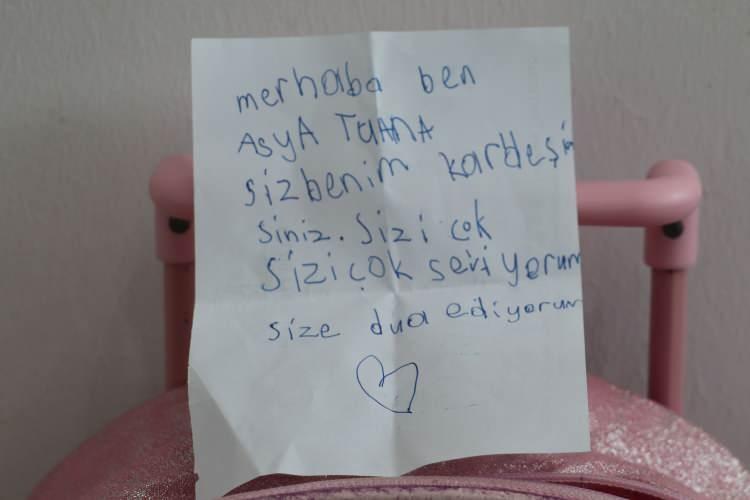 merhaba ben
ASyA TuANA
sizbenim kardeşim
siniz. Sizi çok
Sizi çok seviyorum
size dua ediyorum